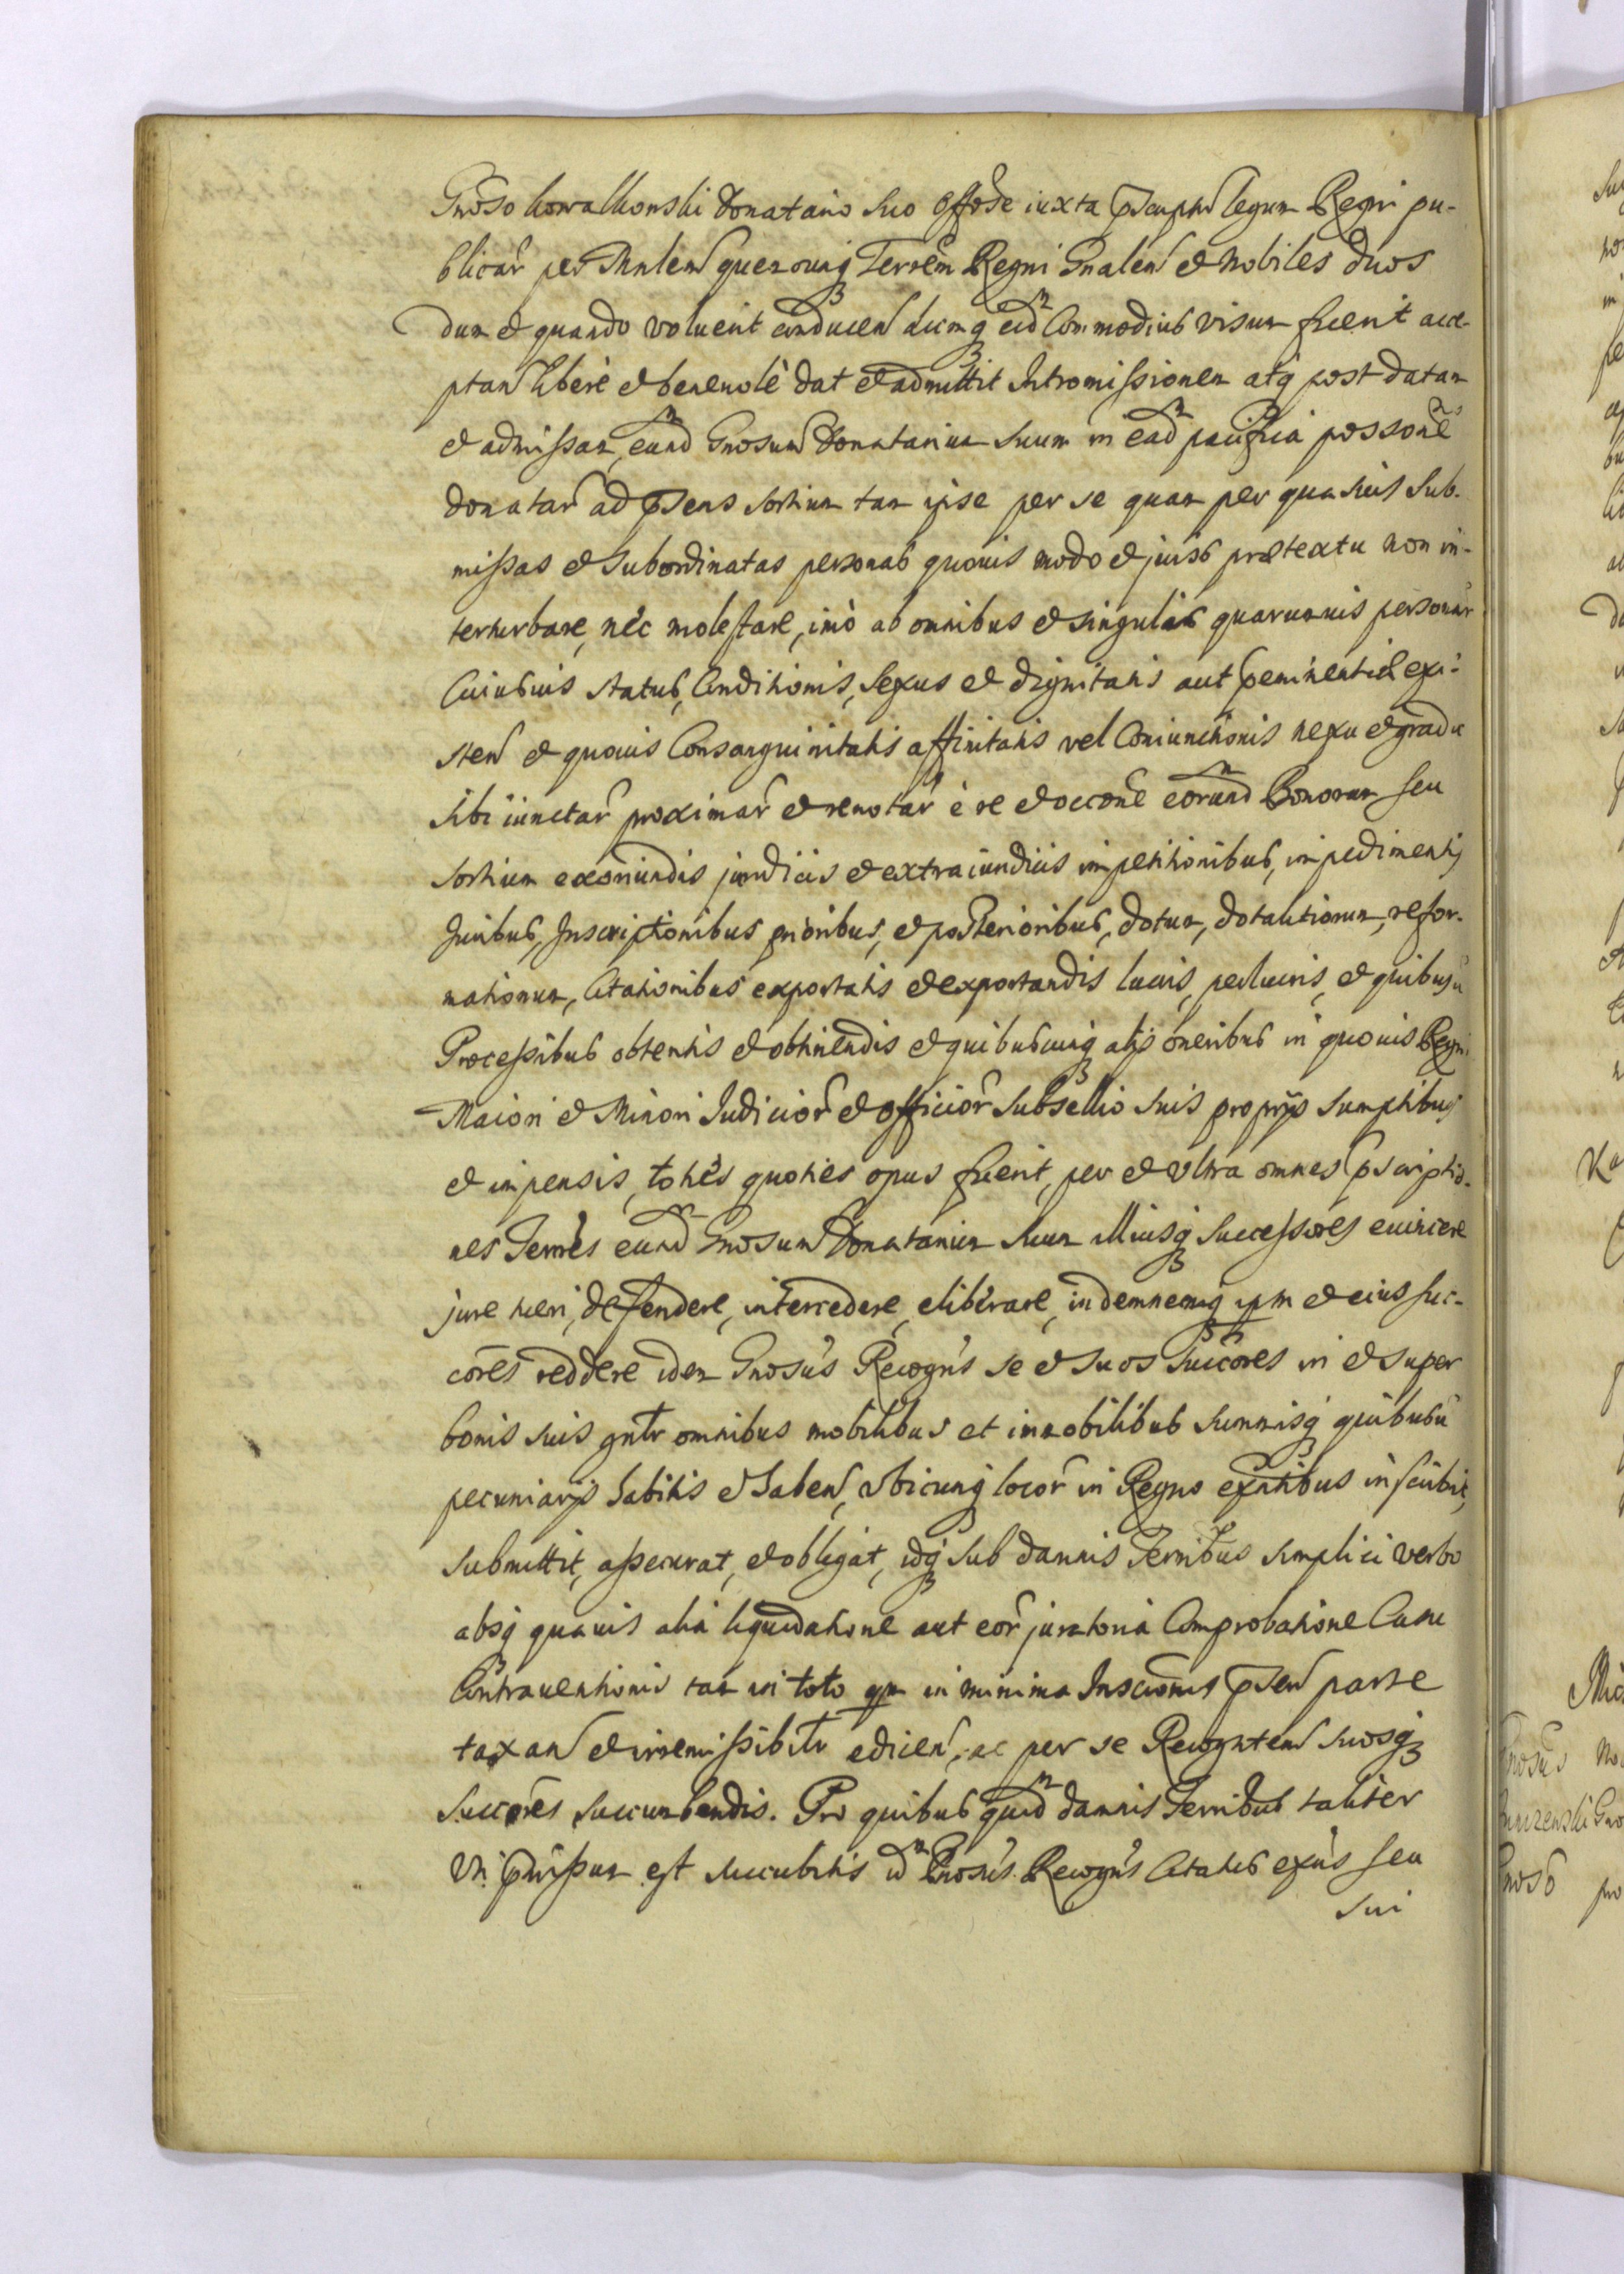 Gnoso Kowalkowski Donatario suo Offose iuxta pscriptu legum Regni pu-
blicar per Mnlem quemcunq Terrem Regni Gnalem et Nobiles duos
dum et quando voluerit conducen cumq eid Commodius visum fuerit acce-
ptan libere et benevole dat et admittit Intromissionem atq post datam
et admissam, eund Gnosum Donatarium suum in ead pacifica possone
donatar ad psens sortium tam ipse per se quam per quasuis sub-
missas et subordinatas personas quouis modo et juris prætextu non in-
terturbare, nec molestare, imò ab omnibus et singulis quarumuis personar
Cuiusuis status, Conditionis, Sexus et dignitatis aut peminentiæ exi-
sten et quouis Consanguinitatis affinitatis vel Coniunctionis nexu et gradu
sibi iunctar proximar et remotar è re et occone eorund Bonorum seu
sortium exoriundis juridicis et extraiuridicis impetitionibus, impedimentis
Juribus, Inscriptionibus prioribus, et posterioribus, dotum, dotalitiorum, refor-
mationum, Citationibus exportatis et exportandis lucris, perlucris, et quibusu
Processibus obtentis et obtinendis et quibuscunq alijs oneribus in quouis Regni
Maiori et Minori Iudicior et Officior Subsellio suis proprijs sumptibus
et impensis, toties quoties opus fuerit, per et Ultra omnes pscriptio-
nes Terrres eund Gnosum Donatarium suum illiusq Successores euincere
jure tueri, defendere, intercedere, eliberare, indemnemq ipm et eius suc-
cores reddere idem Gnosus Recogns se et suos succores in et super
bonis suis gnlr omnibus mobilibus et immobilibus summisq quibusu
pecuniarijs habitis et haben, ubicunq locor in Regno exntibus inscribit,
submittit, assecurat, et obligat, idq sub damnis Terribus simplici verbo
absq quauis alia liquidatione aut eor juratoria Comprobatione Casu
Contrauentionis tam in toto qm in minima Inscriois psen parte
taxan et irremissibilr edicen, ac per se Recognten suosq
Succores succumbendis. Pro quibus quid damnis Terribus taliter
Uti pmissum est succubitis id Gnosus Recogns Citatus exns seu
sui